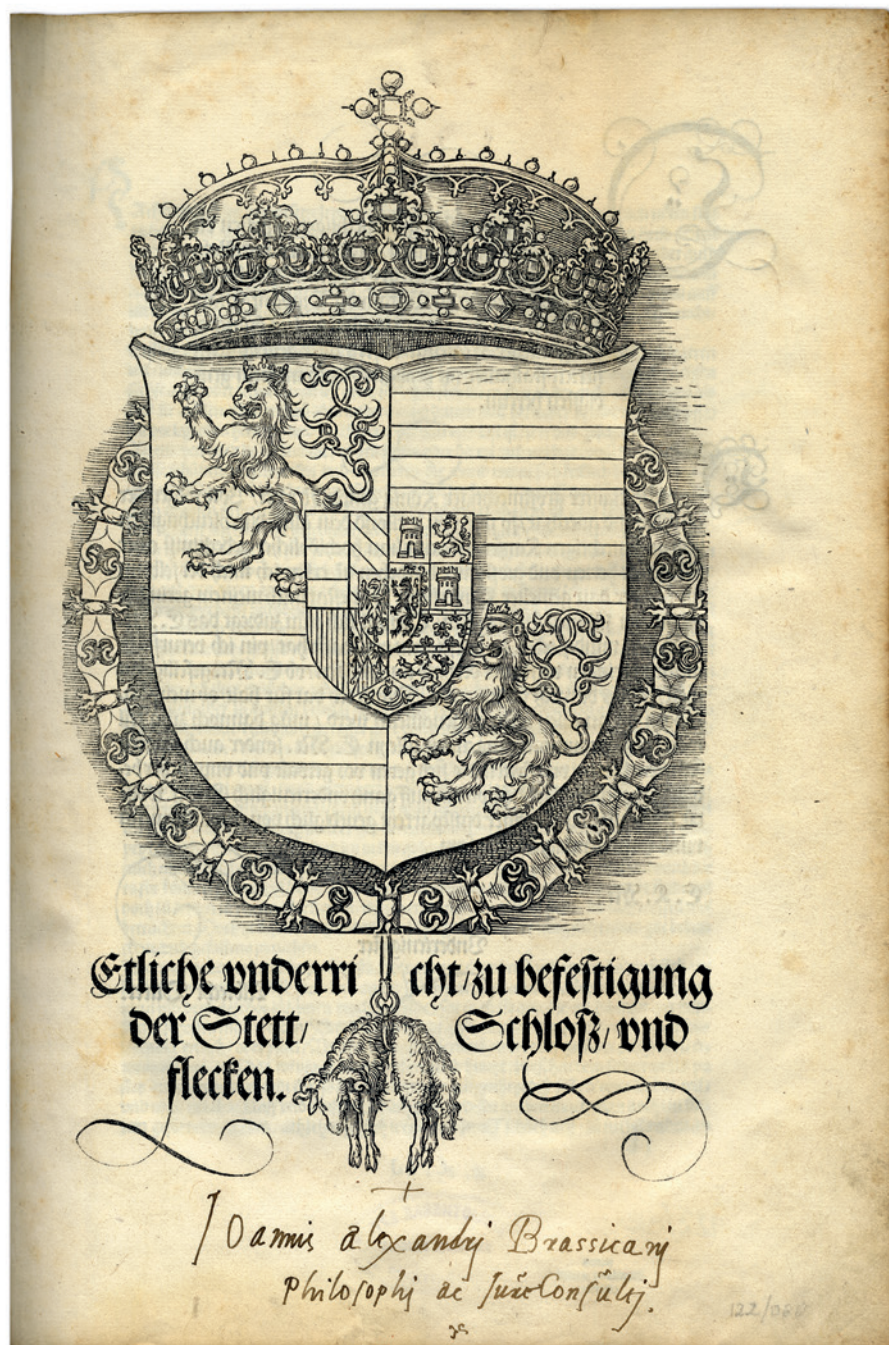 Etliche vnderricht/zu befestigung
der Stett/ Schlosz/ vnd
flecken.
Ioannis alexandrj Brassicanj
Philosophj ac JureConsultj.